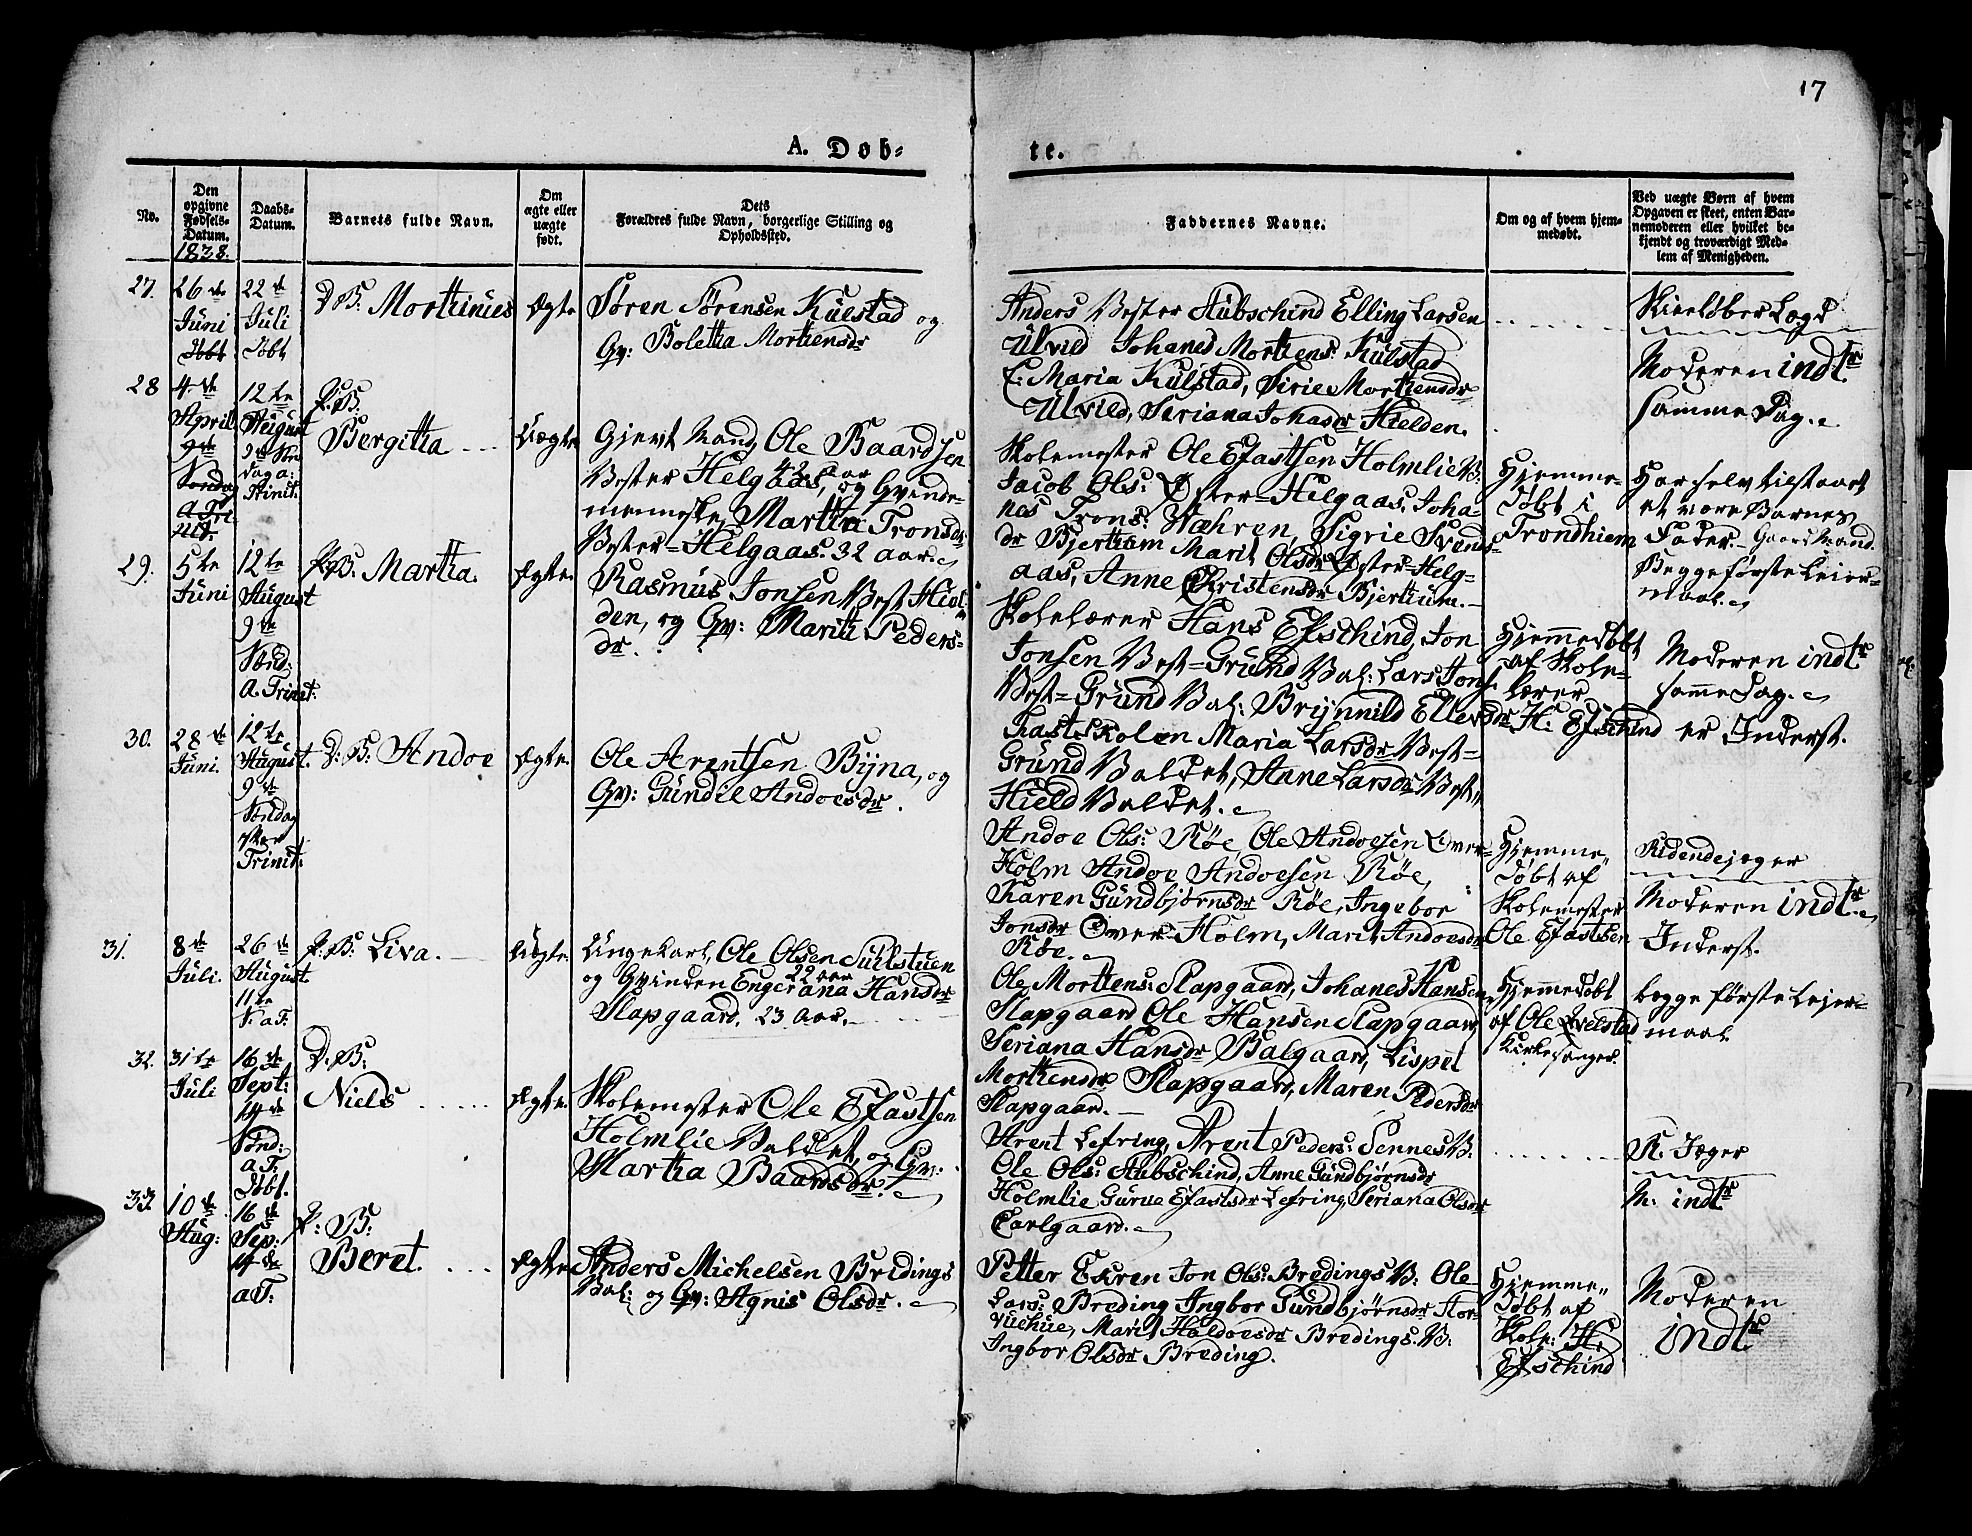 17
A. Døb-
te.
No.
Den opgivne Fødsels-Datum. 1838.
Daabs-Datum.
Barnets fulde Navn.
Om ægte eller uægte født.
Dets Forældres fulde Navn, borgerlige Stilling og Opholdssted.
Faddernes Navne.
Om og af hvem hjemmedøbt.
Ved uægte Børn af hvem Opgaven er skeet, enten Barnemoderen eller hvilket bekjendt og troværdigt Medlem af Menigheden.
27.
26de
Juni
Døbt
22de
Juli
Døbt
D.B: Morthinus
Ægte
Søren Sørensen Kulstad og
Gv: Boletha Morthensdr
Anders Vester Aubschind Elling Larsen
Ulvild Johanes Mortens: Kulstad
C: Maria Kulstad, Sirie Morthensdr
Ulvild, Seriana Johasdr Hielden.
Skieldber Lægd
Moderen indtr
samme Dag.
28
4de
April
9de
Søndag
a Tri
nit.
12te
August
9de Søn
dag a:
Trinit:
P:B:
Bergitha
Uægte
Gjevt Mand Ole Baardsen
Vester Helgaas, 42 aar og Qvinde-
menneske Martha Tronsdr
Vester=Helgaas. 32 aar.
Skolemester Ole Efastsen Holmlie V:
Jacob Ols: Øster=Helgaas, Joha-
nes Trons: Wæhren, Sigrie Svends-
dr Bjertum Marit Olsdr Øster=Helg-
aas, Anne Christensdr Bjertum.
Hjemme-
døbt i
Trondhiem
Har selv tilstaaet
at være Barnes
Fader. Gaard Mand.
Begge første Leier-
maal.
29.
5te
Juni
12te
August
9de
Sønd:
A. Trinit:
P:B: Martha.
Ægte.
Rasmus Jonsen Vest Hiel-
den, og Gv: Marith Peders-
dr.
Skolelærer Hans Efschind, Jon
Jonsen Vest=Grund Val: Lars Jons:
Vest=Grund Val: Brynnild Ellevsdr
Fastskolen Maria Larsdr Vest-
Grund Valdet, Anne Larsdr Vest-
Hield Valdet.
Hjemmedøbt
af Skole-
lærer
H: Efschind
Moderen indtr
samme Dag.
er Inderst.
30.
28de
Juni.
12te
August.
9de
Søndag
efter
Trinit:
D:B: Andoe
Ægte.
Ole Arentsen Byna, og
Gv: Gundil Andoesdr.
Andoe Ols: Røe, Ole Andoesen Over-
Holm Andoe Andoesen Røe,
Karen Gundbjørnsdr Røe, Ingebor
Jonsdr Over Holm, Marit Andoesdr
Røe.
Hjemme-
døbt af
Skolemester
Ole Efastsen
Ridendejæger
Moderen indtr
Inderst.
31.
8de
Juli.
26de
August.
11te
S. a T.
P:B: Liva.
Uægte.
Ungekarl, Ole Olsen Suulstuen
22 aar
og Qvinden Engeriana Hansdr
Slapgaard. 23 aar.
Ole Mortens: Slapgaard, Johanes Hansen
Slapgaard Ole Hansen Slapgaard
Seriana Hansdr Balgaard, Lispet
Morthensdr Slapgaard, Maren Pedersdr
Slapgaard.
Hjemmedøbt
af Ole Qvelstad
Kirkesanger.
begge første Lejer-
maal
32.
31te
Juli
16de
Sept:
14de
Sønd:
a T.
Døbt.
D:B:
Niels
Ægte.
Skolemester Ole Efastsen
Holmlie Valdet, og Gv:
Martha Baardsdr.
Arent Lefring, Arent Peders: Sennes V:
Ole Ols: Aubschind, Anne Gundbjørnsdr
Holmlie Gurue Efastsdr Lefring, Seriana Olsdr
Carlgaard.
R. Jæger
M: indtr
33.
10de
Aug:
16de
Sep:
14de
a T.
P: B:
Beret.
Ægte
Anders Michelsen Bredings
Val: og Gv: Agnis Olsdr.
Petter Ekren Jon Ols: Bredings V: Ole
Lars: Breding Ingbor Gundbjørnsdr Stor-
vuchue, Marit Haldoesdr Bredings V:
Ingbor Olsdr Breding.
Hjemme-
døbt af
Skole: H:
Efschind
Moderen
indtr